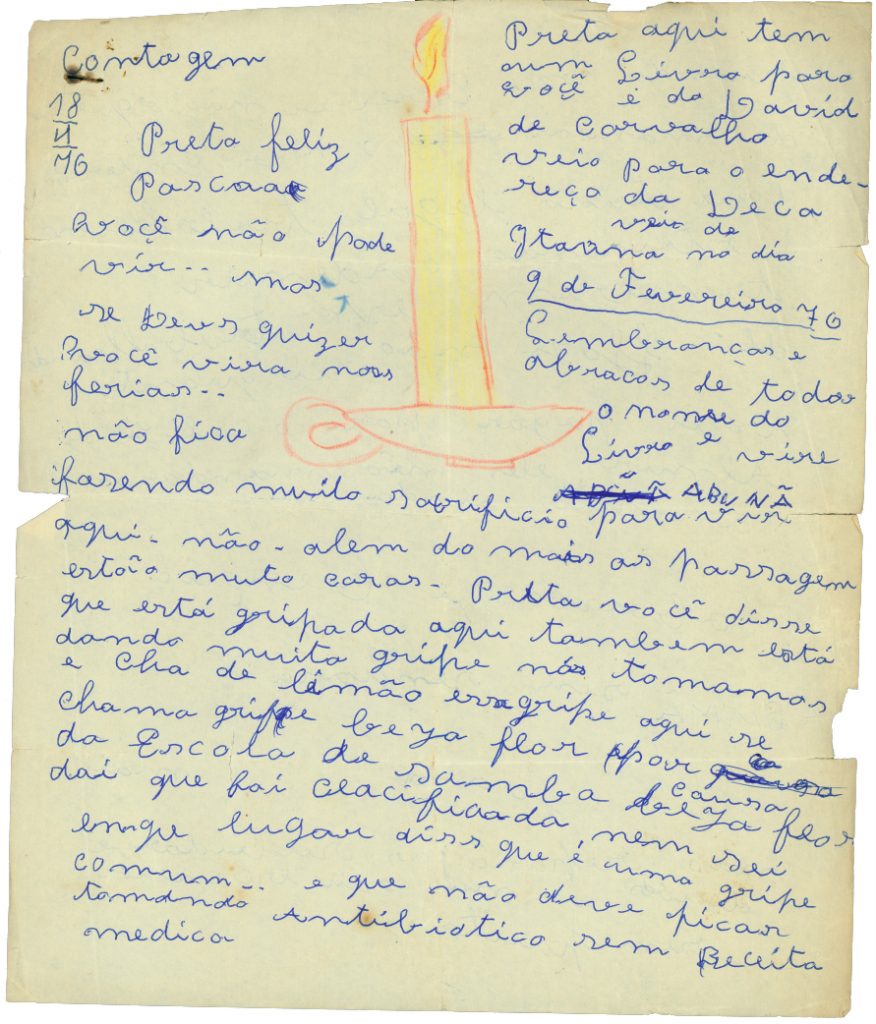 Contagem
18
4
76
Preta feliz
Pascoa
você não pode
vir.. mas
se Deus quizer
você vira nas
ferias..
não fica
fazendo muito sacrificio para vir
aqui - não - alem do mais as passagem
estão muto caras - Preta você disse
que está gripada aqui tambem está
dando muita gripe nós tomamos
e cha de limão essa gripe aqui se
chama gripe beya flor por causa
da Escola de samba beya flor
dai que foi clacificada nem sei
em que lugar diss que é uma gripe
comum.. e que não deve picar
tomando Antibiotico sem Receita
medica
Preta aqui tem
um Livro para
você é do David
de Carvalho
veio para o ende-
reço da Deca
veio de
Itauna no dia
9 de Fevereiro 76
Lembranças e
abracos de todos
o nome do
Livro é vire
ABUNÃ